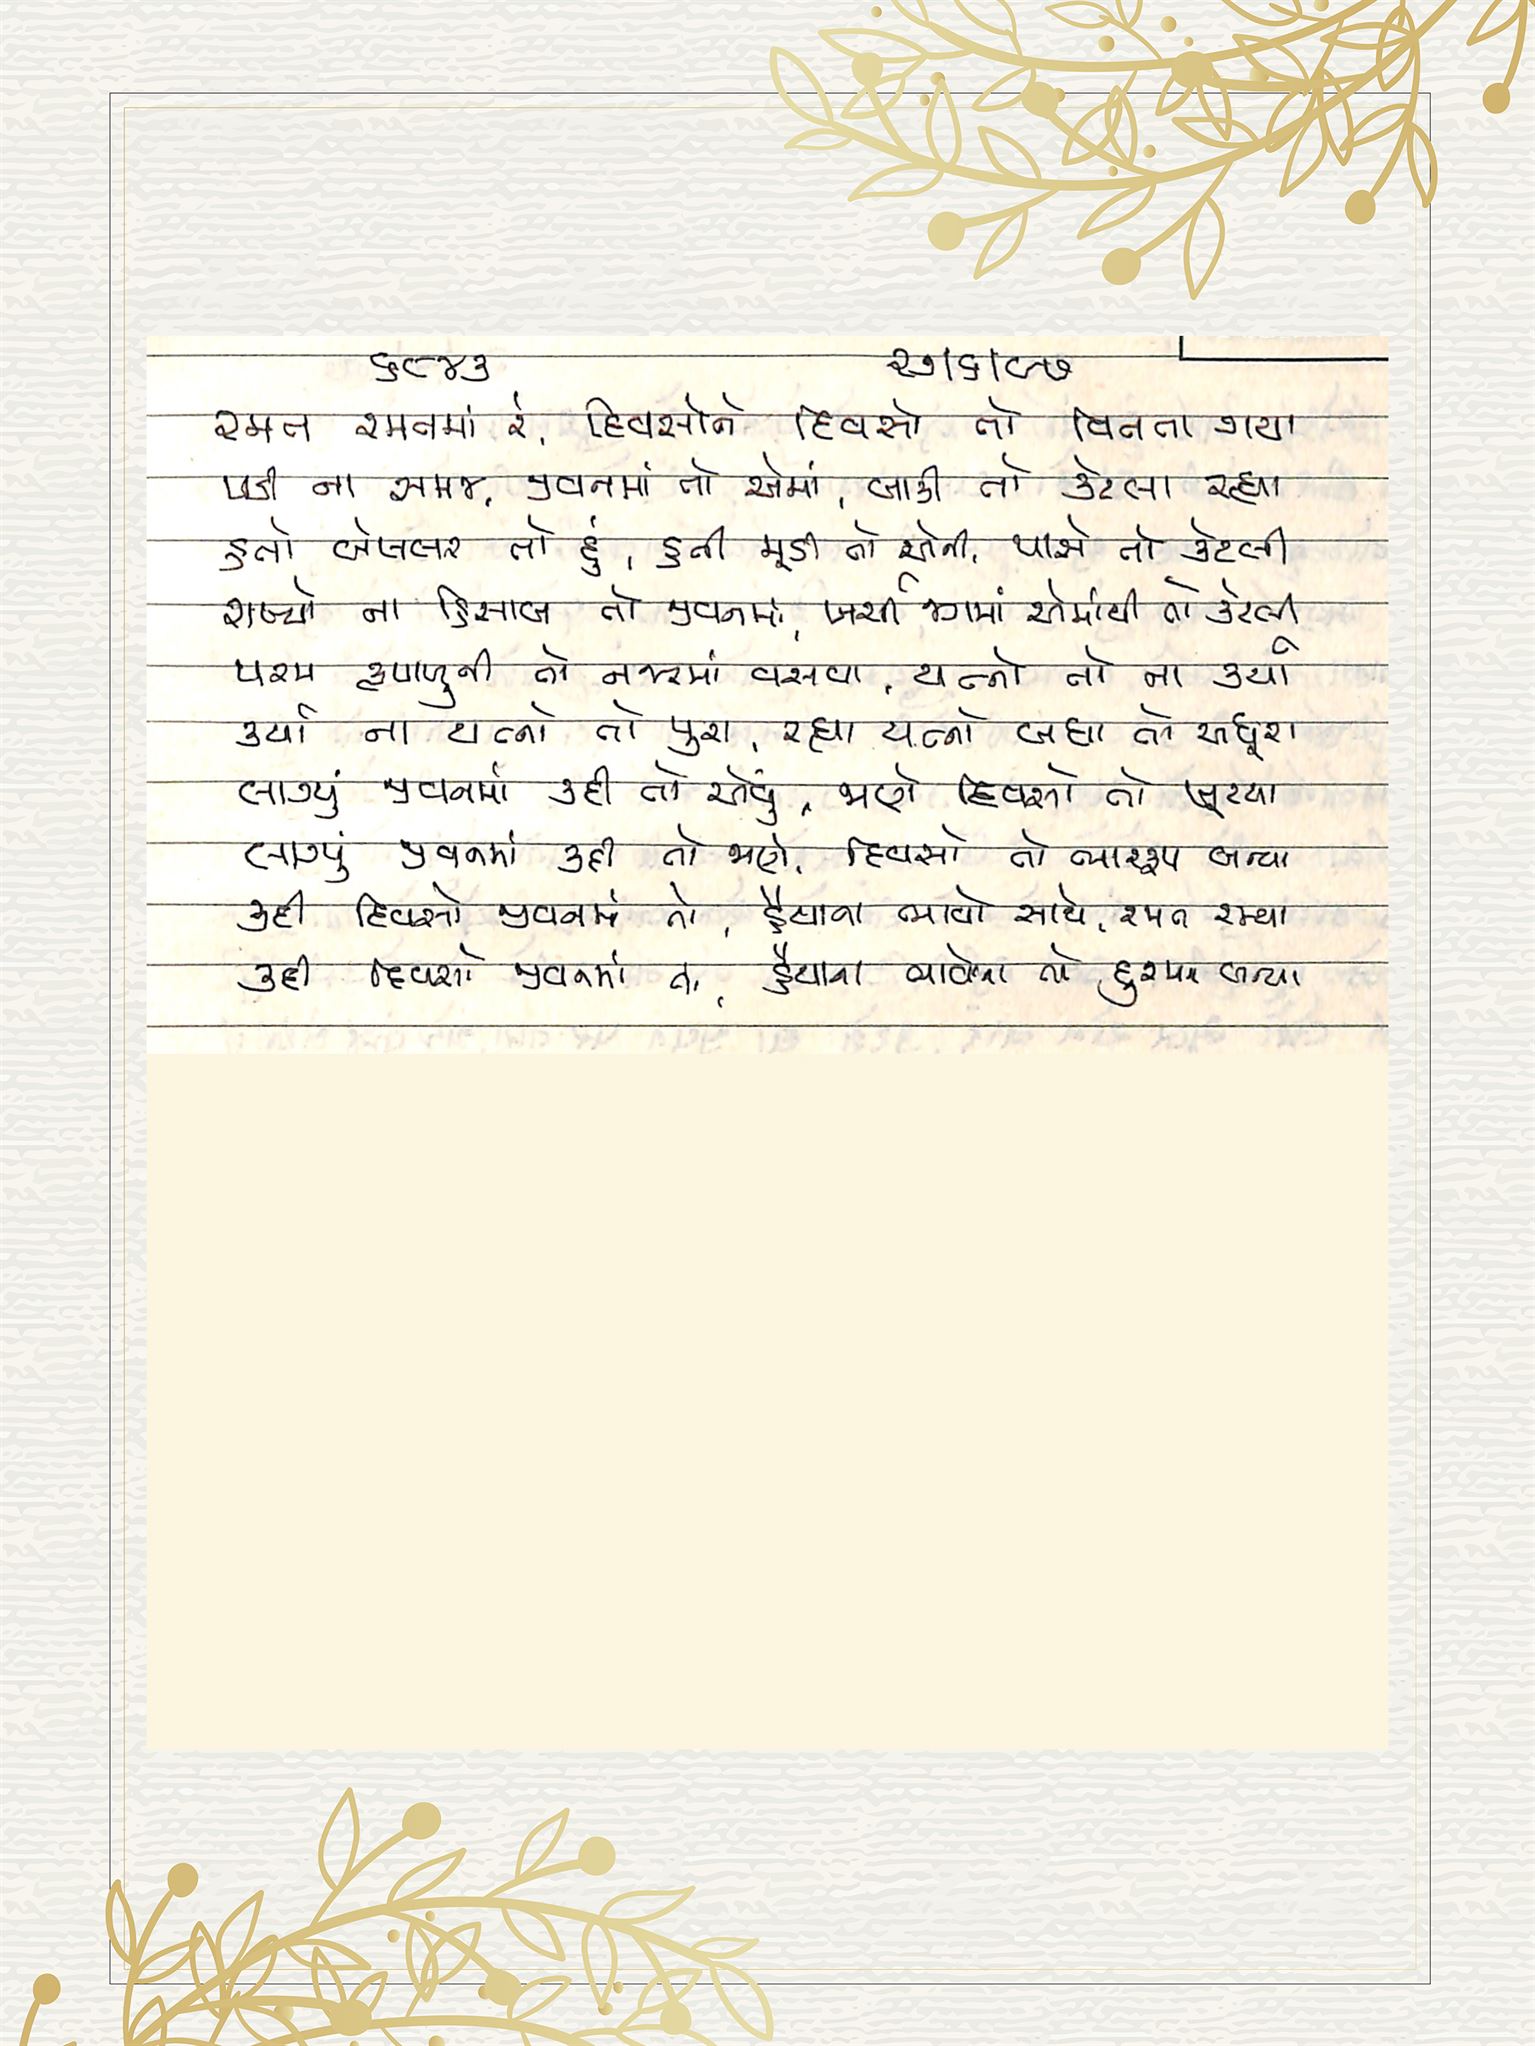 ૬૮૪૩ ૨૭/૬/૯૭
રમત રમતમાં રે, દિવસોને દિવસો તો વિતતા ગયા
પડી ના સમજ, જીવનમાં તો એમાં, બાકી તો કેટલા રહ્યા
હતો બેખબર તો હું, હતી મૂડી તો એની, પાસે તો કેટલી
રાખ્યો ના હિસાબ તો જીવનમાં, ખર્ચી જગમાં એમાંથી તો કેટલી
પરમ કૃપાળુની તો નજરમાં વસવા, યત્નો તો ના કર્યા
કર્યા ના યત્નો તો પુરા, રહ્યા યત્નો બધા તો અધૂરા
લાગ્યું જીવનમાં કદી તો એવું, જાણે દિવસો તો ખૂટયા
લાગ્યું જીવનમાં કદી તો જાણે, દિવસો તો ભારરૂપ બન્યા
કદી દિવસો જીવનમાં તો, હૈયાના ભાવો સાથે, રમત રમ્યા
કદી દિવસો જીવનમાં તો, હૈયાના ભાવોના તો દુશ્મન બન્યા